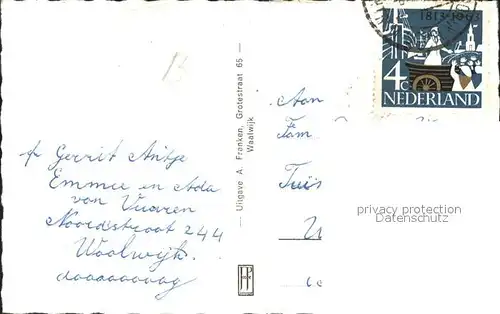 13
f/ Gerrit Antje
Emmee en Ada
van Vuuren
Noordstraat 244
Waalwijk.
daaaaaaaag
— Uitgave A. Franken, Grotestraat 65 —
Waalwijk
JosPé
1813·1963
4c
NEDERLAND
Aan
Fam
Tuis
privacy protection
Datenschutz